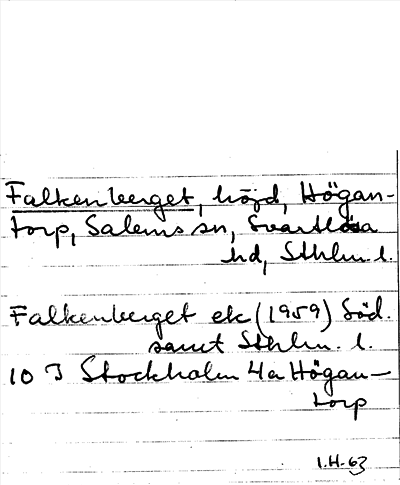 Falkenberget, höjd, Högan-
torp, Salems sn, Svartlösa
hd, Sthlm l.
Falkenberget ek (1959) Söd.
samt Sthlm. l.
10 I Stockholm 4a Högan-
torp
I.H-63